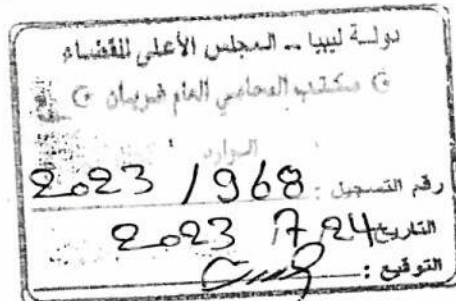 دولة ليبيا .. المجلس الأعلى للقضاء
مكتب المحامي العام غريان
الوارد
رقم التسجيل : 1968 / 2023
التاريخ 24 7 2023
التوقيع :